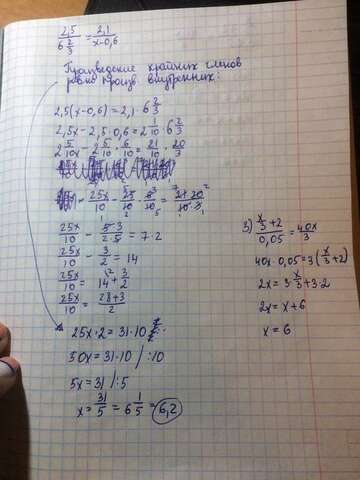 2,5/6 2/3 = 2,1/x-0,6
Произведение крайних членов
равно произв. внутренних:
2,5(x-0,6) = 2,1 · 6 2/3
2,5x - 2,5 · 0,6 = 2 1/10 · 6 2/3
2 5/10 x - 2 5/10 · 6/10 = 21/10 · 20/3
25x/10 - 25/10 · 6/10 = 21 · 20/10 · 3
25x/10 - 5·3/2·5 = 7·2
25x/10 - 3/2 = 14
25x/10 = 14 + 3/2
25x/10 = 28+3/2
25x·2 = 31·10
50x = 31·10 /:10
5x = 31 /:5
x = 31/5 = 6 1/5 = 6,2
3) x/3+2/0,05 = 40x/3
40x · 0,05 = 3(x/3+2)
2x = 3·x/3+3·2
2x = x+6
x = 6